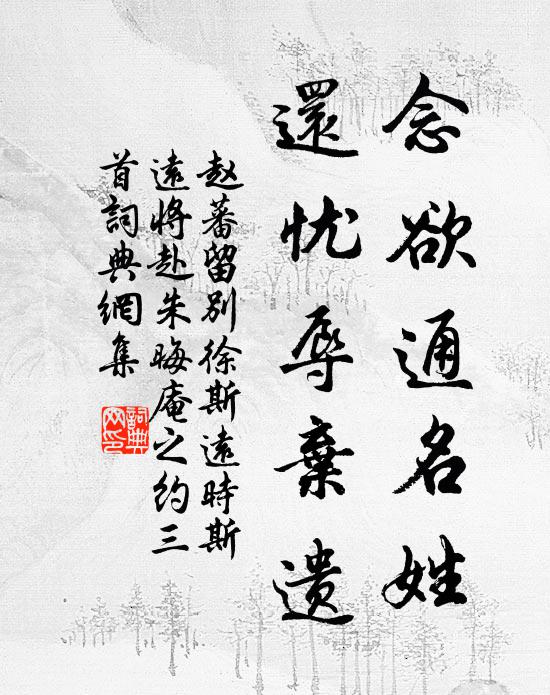 念欲通名姓
還忧辱棄遗
赵蕃留别徐斯遠時斯
遠將赴朱晦庵之约三
首詞典網集
詞典
网印